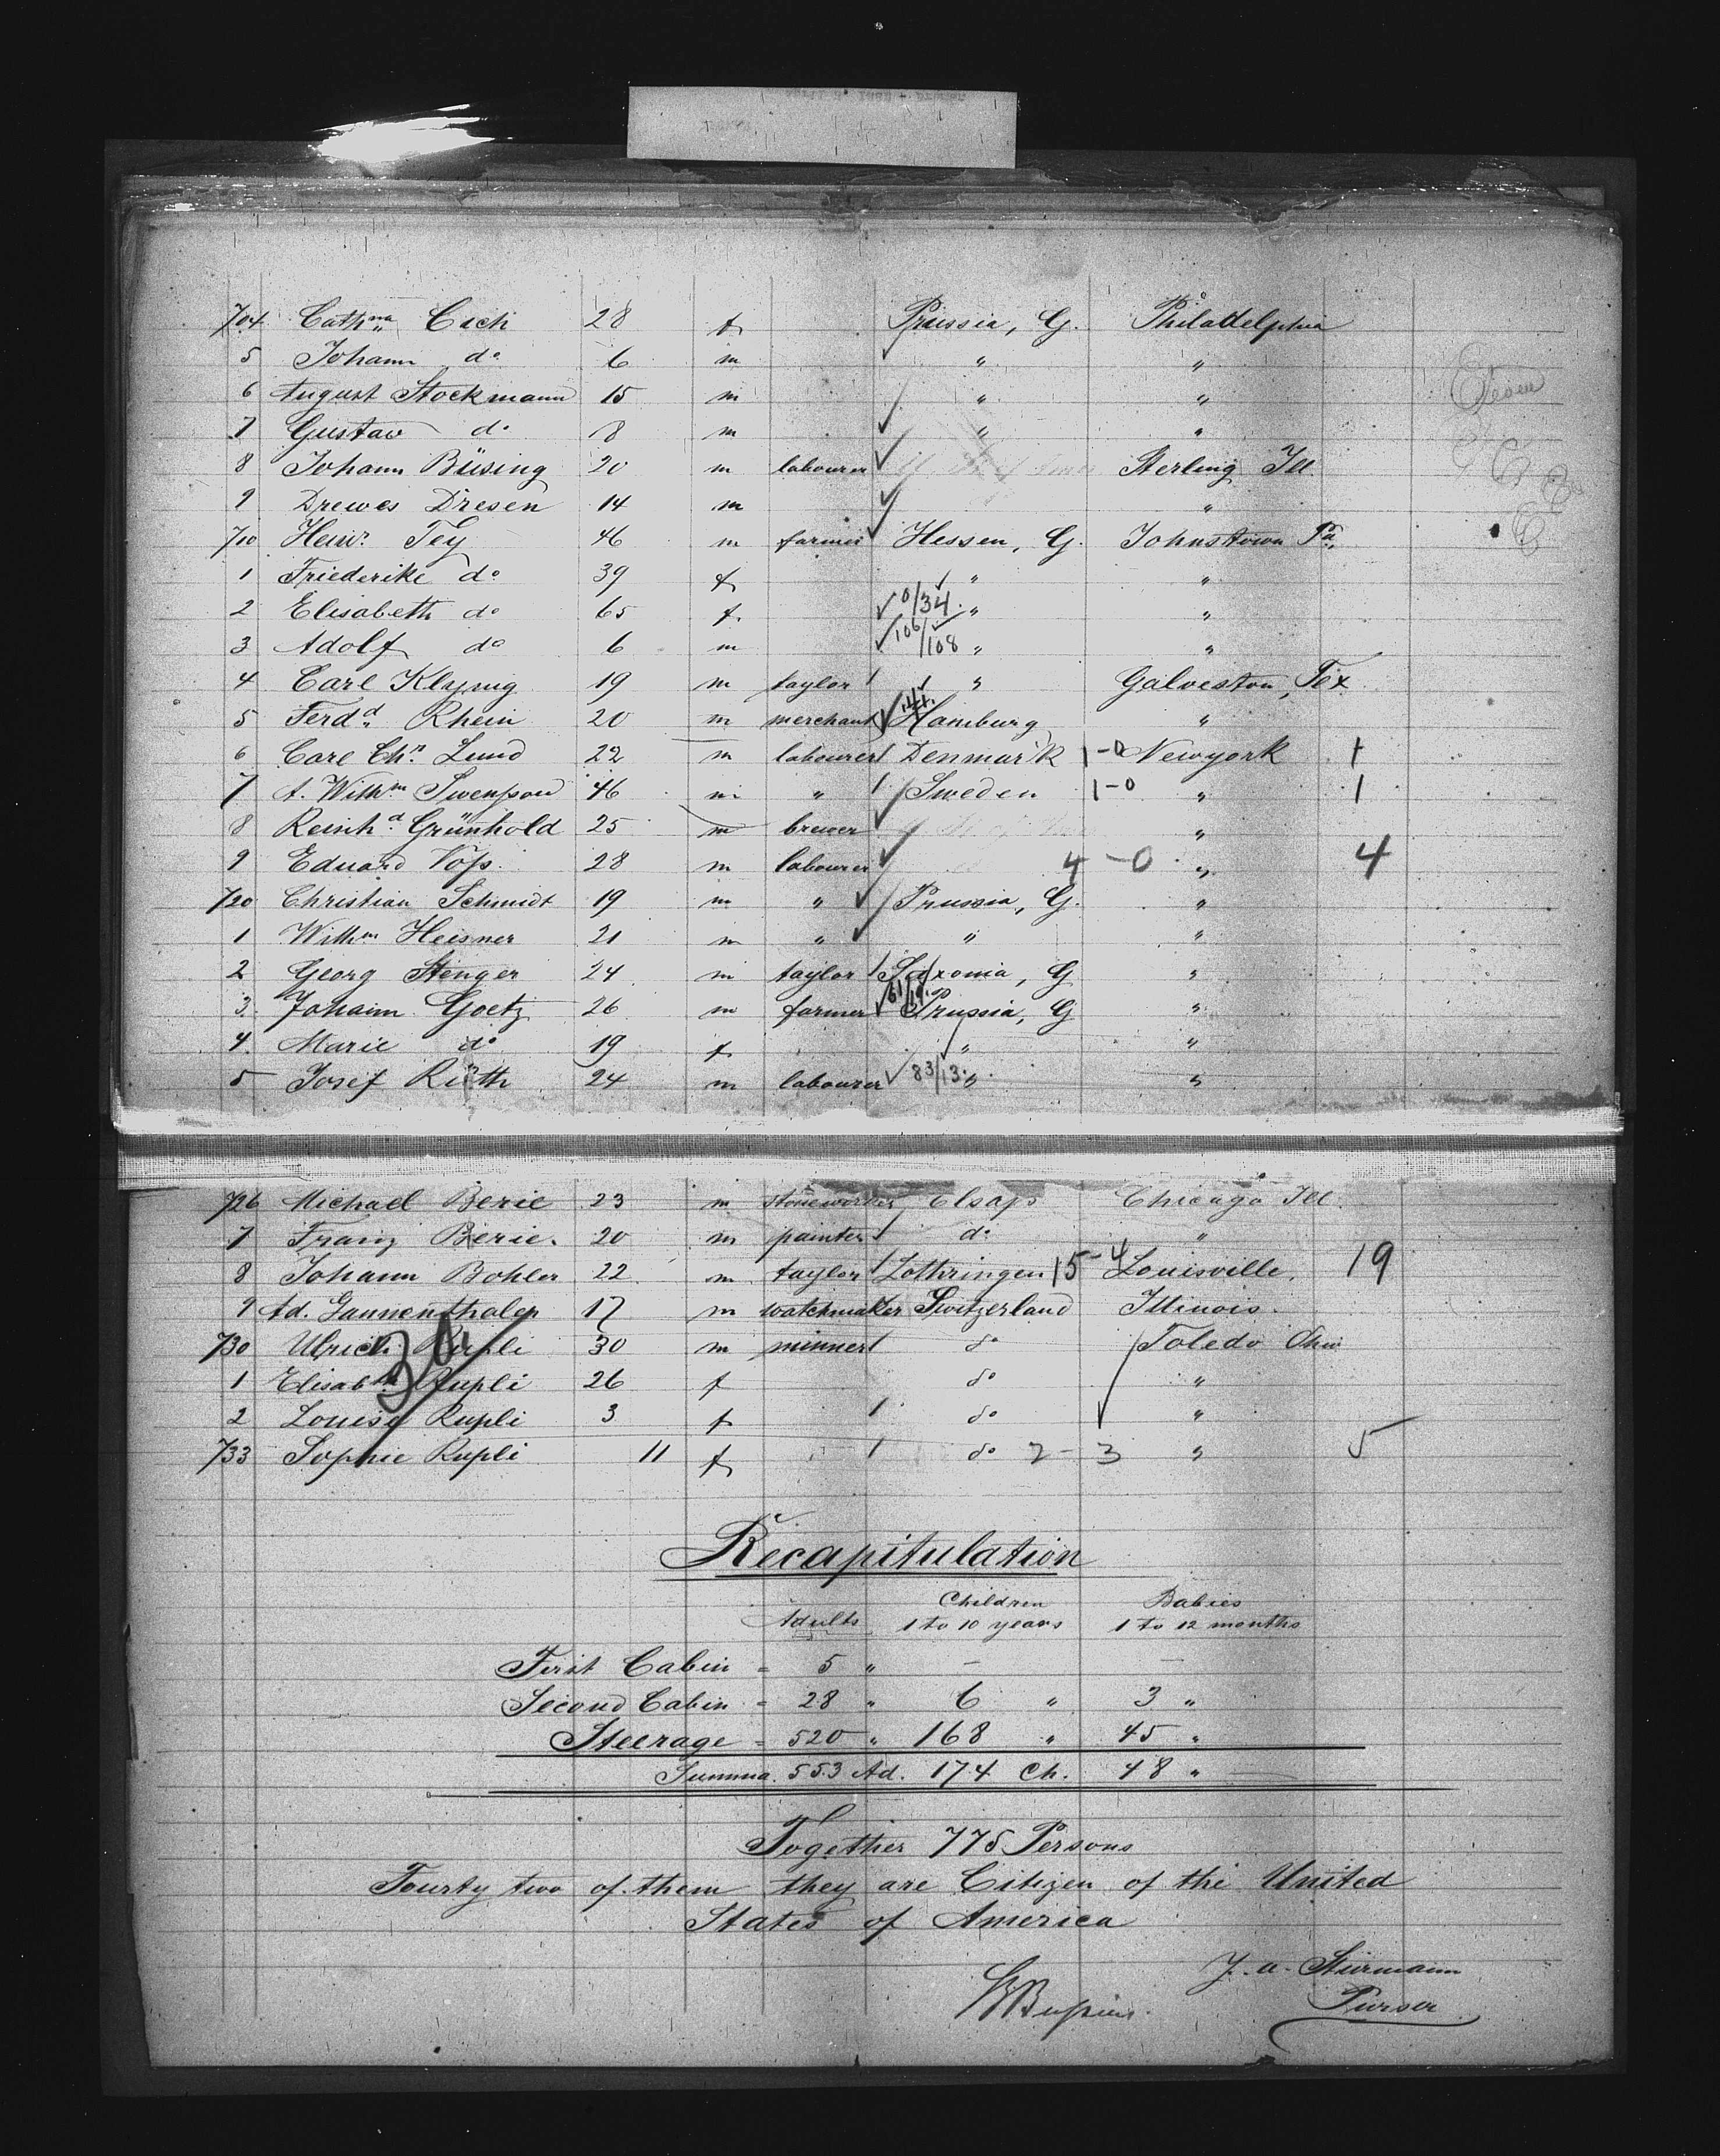 704 Cathna Cich 28 f Prussia, G. Philadelphia
5 Johann do 6 m " "
6 August Stockmann 15 m " "
7 Gustav do 8 m " "
8 Johann Büsing 20 m labourer Sterling Ill.
9 Drewes Dresen 14 m "
710 Heinr. Fey 46 m farmer Hessen, G. Johnstown Pa.
1 Friederike do 39 f " "
2 Elisabeth do 65 f. 0/34. " "
3 Adolf do 6 m 106/108 " "
4 Carl 19 m taylor " Galveston, Tex.
5 Ferdd Rhein 20 m merchant Hamburg "
6 Carl Chn. Lund 22 m labourer Denmark 1-0 Newyork 1
7 A. Wilhm Swensson 46 m " Sweden 1-0 " 1
8 Reinhd Grünhold 25 m brewer "
9 Eduard Voss. 28 m labourer 4-0 " 4
720 Christian Schmidt 19 m " Prussia, G. "
1 Wilhm Heisner 21 m " " "
2 Georg Stenger 24 m taylor Saxonia, G "
3 Johann Goetz 26 m farmer 61/19. Prussia, G "
4. Marie do 19 f " "
5 Josef Rüth 24 m labourer 83/13. " "
726 Michael Berie 23 m stoneworker Elsass Chicago Ill.
7 Franz Berie. 20 m painter do "
8 Johann Bohler 22 m taylor Lothringen 15-4 Louisville, 19
9 Ad. Gannenthaler 17 m watchmaker Switzerland Illinois.
730 Ulrich Rupli 30 m minner do Toledo Ohio
1 Elisabth Rupli 26 f do "
2 Louise Rupli 3 f do "
733 Sophie Rupli 11 f do 2-3 " 5
Recapitulation
Adults Children 1 to 10 years Babies 1 to 12 months
First Cabin = 5 " – –
Second Cabin = 28 " 6 " 3 "
Steerage = 520 " 168 " 45 "
Summa. 553 Ad. 174 Ch. 48 "
Together 775 Persons
Fourty two of them they are Citizen of the United
States of America
J. a. Stürmann
Purser